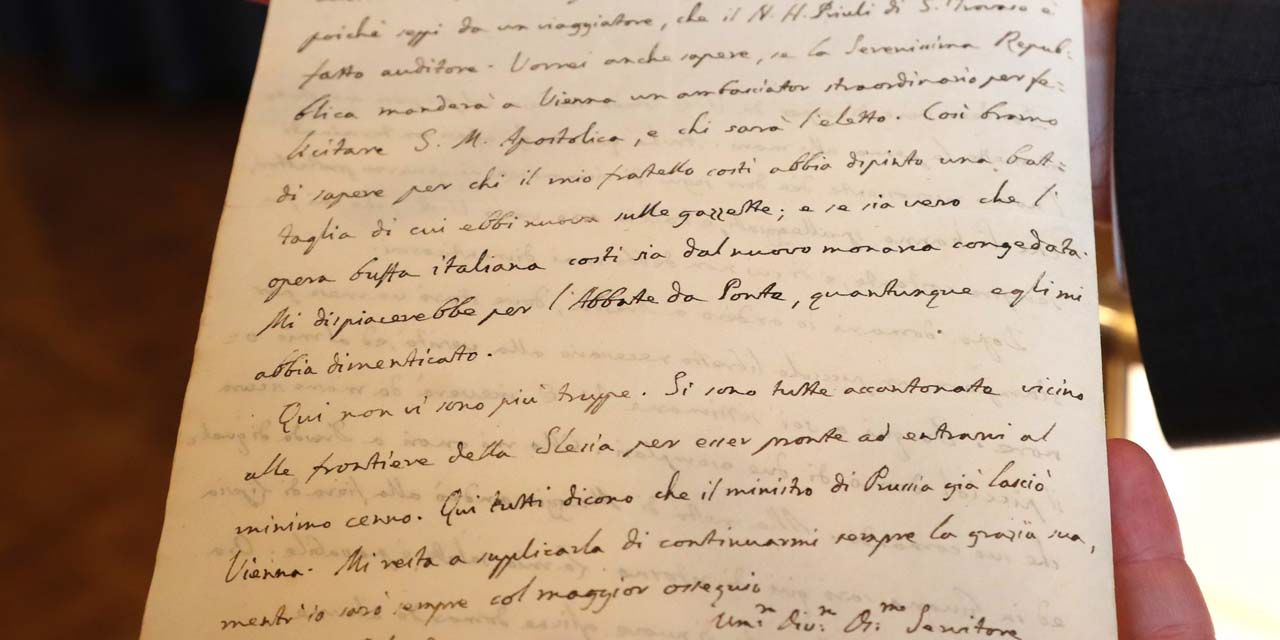 poichè seppi da un viaggiatore, che il N. H. Priuli di S. Trovaso è
fatto auditore. Vorrei anche sapere, se la Serenissima Repub=
blica manderà a Vienna un ambasciator straordinario per fe=
licitare S. M. Apostolica, e chi sarà l'eletto. Così bramo
di sapere per chi il mio fratello costì abbia dipinto una bat=
taglia di cui ebbi nuova sulle gazzette; e se sia vero che l'
opera buffa italiana costì sia dal nuovo monarca congedata.
Mi dispiacerebbe per l'Abbate da Ponte, quantunque egli mi
abbia dimenticato.
Qui non vi sono più truppe. Si sono tutte accantonate vicino
alle frontiere della Slesia per esser pronte ad entrarvi al
minimo cenno. Qui tutti dicono che il ministro di Prussia già lasciò
Vienna. Mi resta a supplicarla di continuarmi sempre la grazia sua,
mentr'io sarò sempre col maggior ossequio
Um.º Div.º Servitore